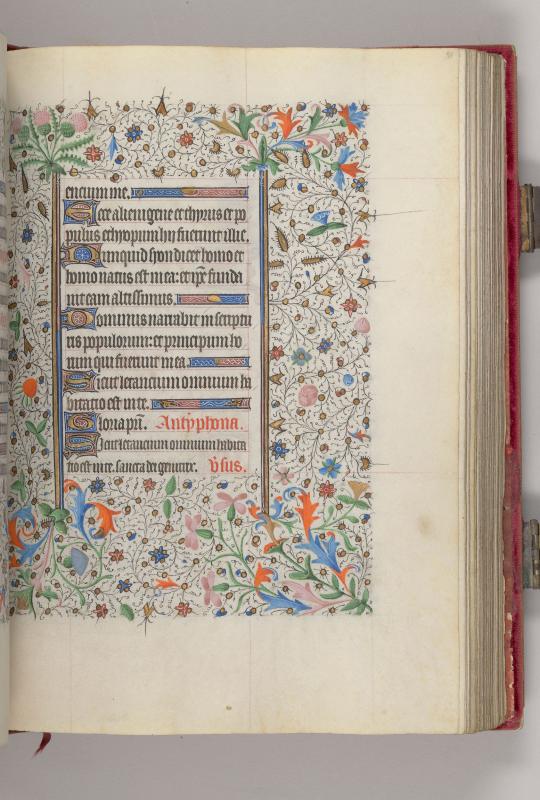 encium me.
Ecce alienigene et thyrus et po
pulus ethyopum hii fuerunt illic.
Numquid syon dicet homo et
homo natus est in ea: et ip̄e funda
uit eam altissimus.
Dominus narrabit in scriptu
ris populorum: et principum ho
rum qui fuerunt in ea.
Sicut letancium omnium ha
bitatio est in te.
Gloria pr̄i. Antyphona.
Sicut letancium omnium habita
tio est in te. sancta dei genitrix. v̄sus.